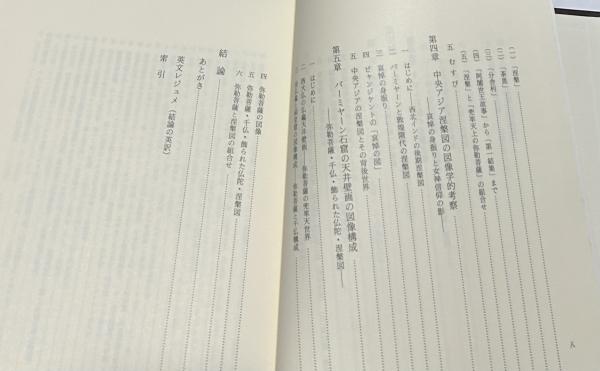 (一)「涅槃」
(二)「荼毘」
(三)「分舎利」
(四)「阿闍世王故事」から「第一結集」まで
(五)「涅槃」と「兜率天上の弥勒菩薩」の組合せ
五 むすび
第四章 中央アジア涅槃図の図像学的考察
哀悼の身振りと女神信仰の影
一 はじめに
二 西北インドの後期涅槃図
二 バーミヤーンと敦煌隋代の涅槃図
三 哀悼の身振り
四 ピャンジケントの「哀悼の図」
五 中央アジアの涅槃図とその背後世界
第五章 バーミヤーン石窟の天井壁画の図像構成
弥勒菩薩・千仏・飾られた仏陀・涅槃図――
一 はじめに
二 西大仏の仏龕天井壁画 弥勒菩薩の兜率天世界
弥勒菩薩と千仏構成
四 弥勒菩薩の図像
五 弥勒菩薩・千仏・飾られた仏陀・涅槃図
六 弥勒菩薩と涅槃図の組合せ
結論
あとがき
英文レジュメ(結論の英訳)
索引
八